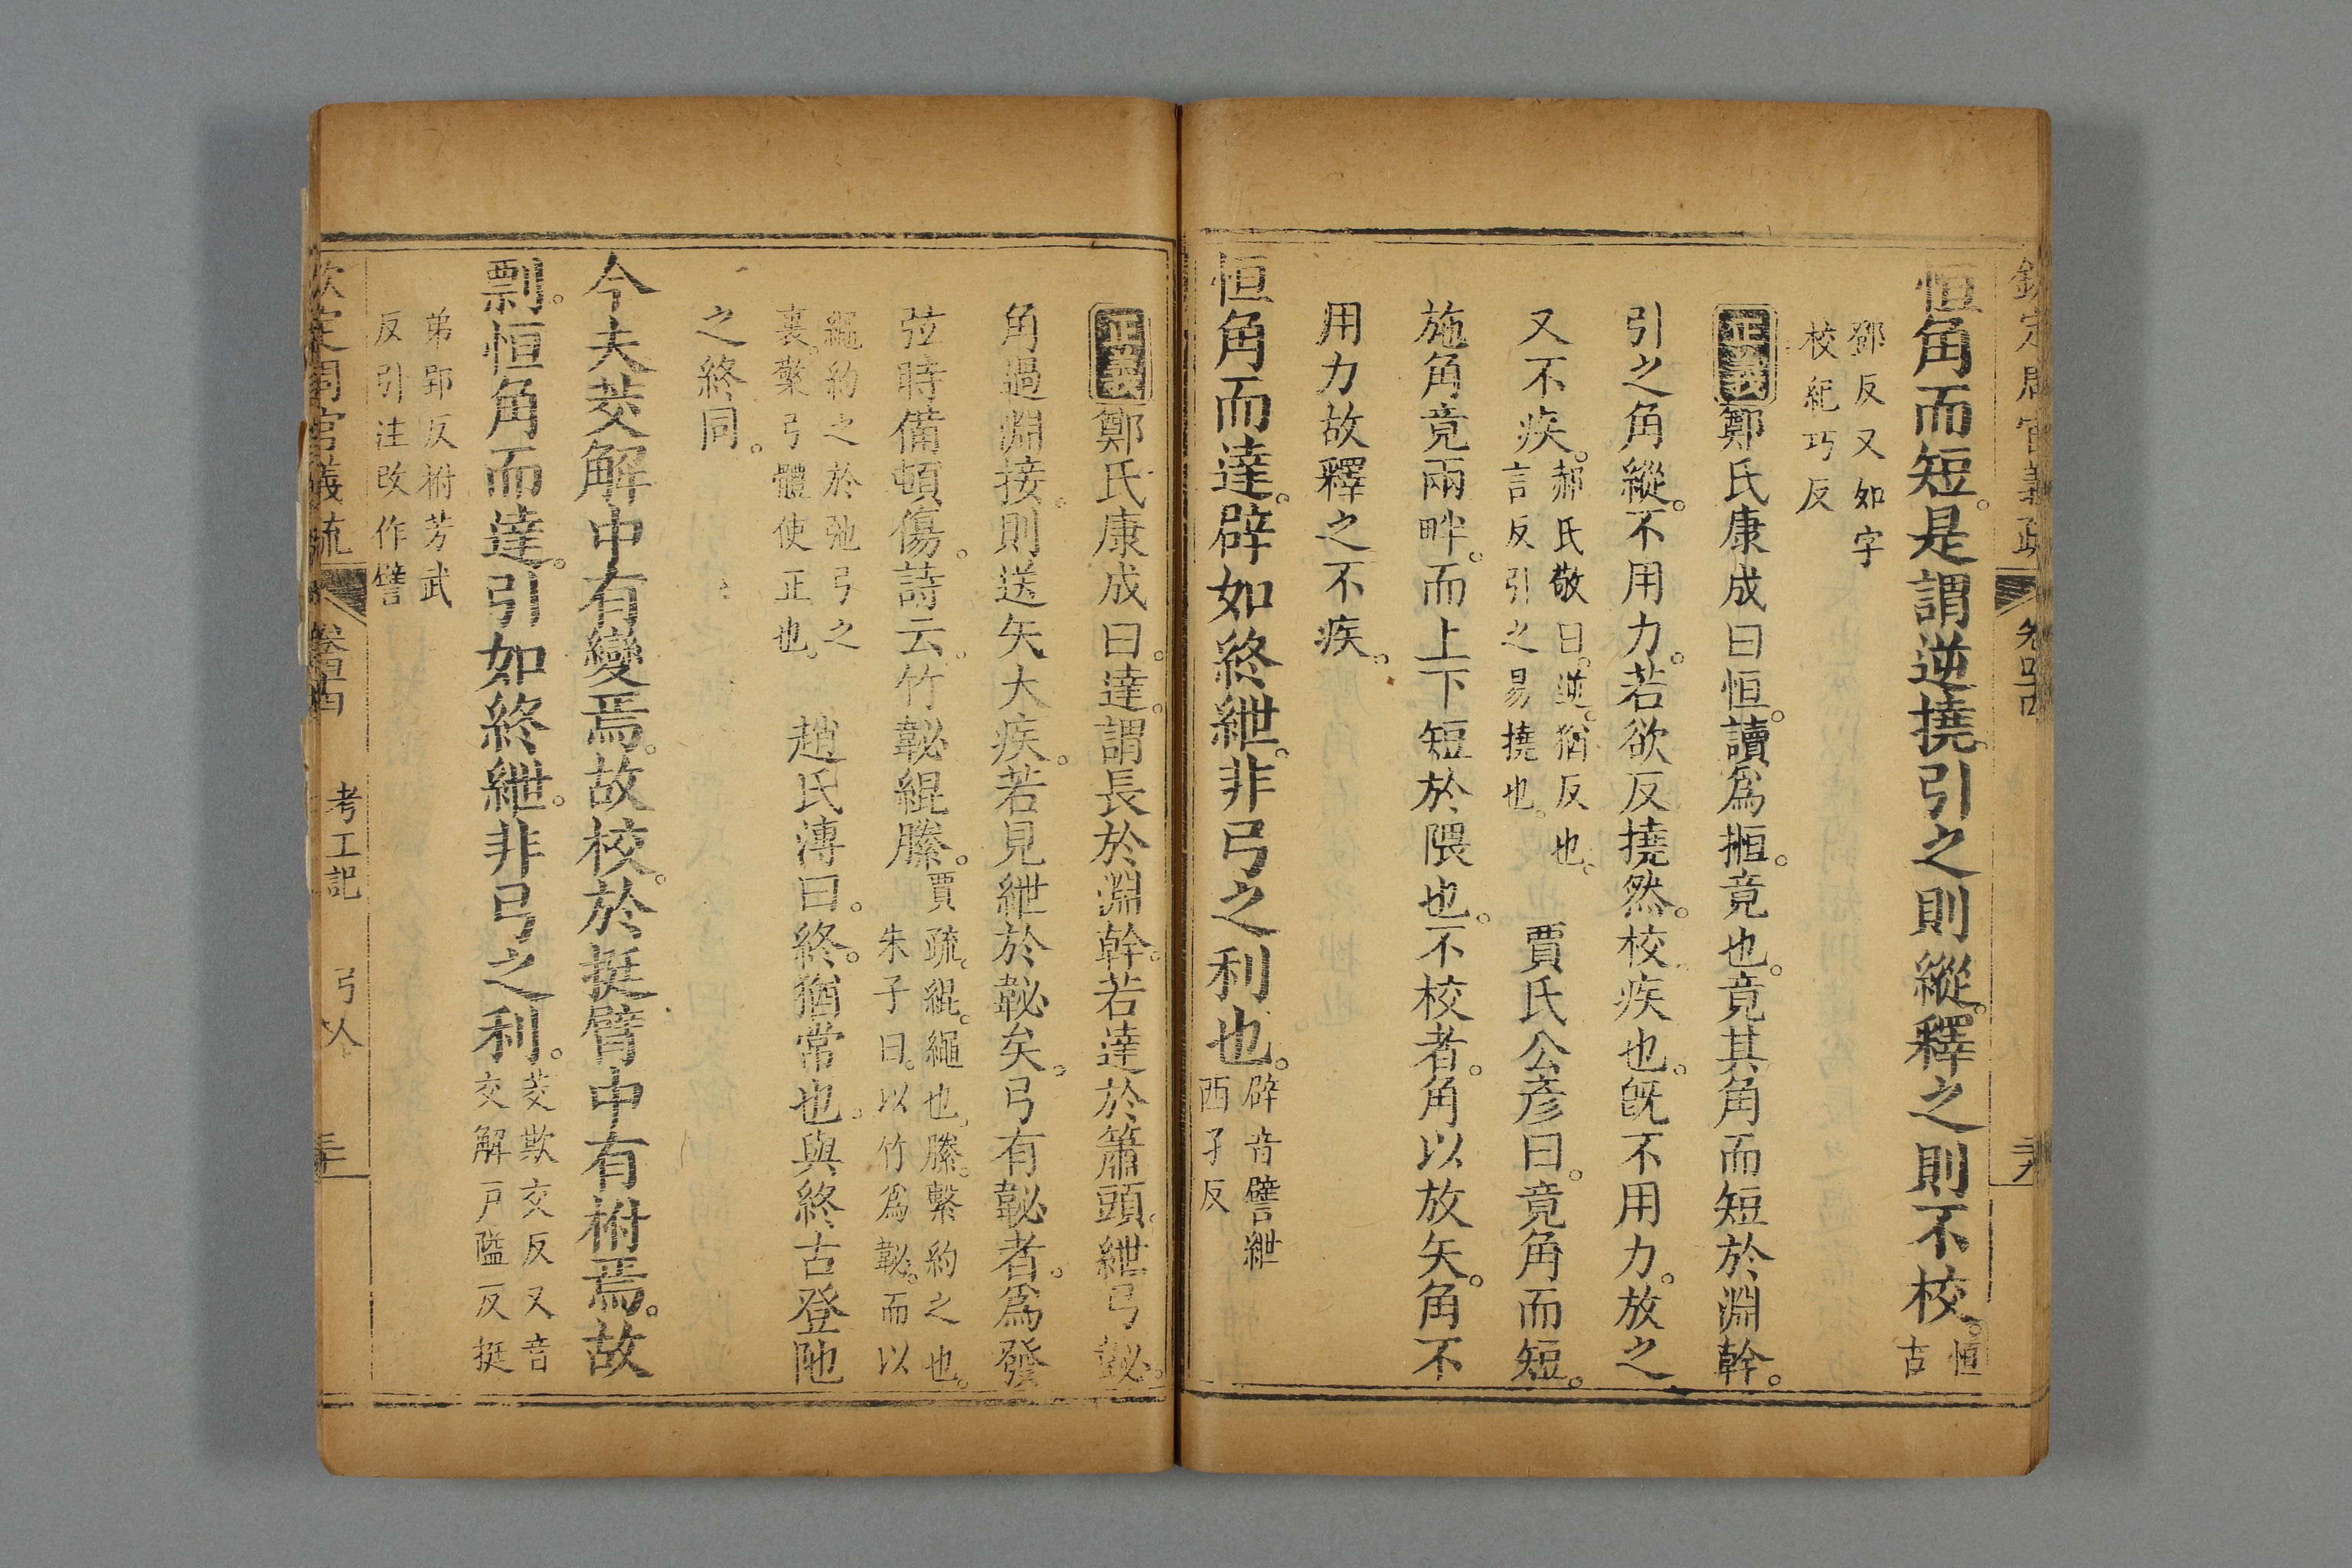 欽定周官義疏 卷四十四
恒角而短。是謂逆撓。引之則縱。釋之則不校。恒古
鄧反又如字校紀巧反
正義鄭氏康成曰恒。讀爲搄。竟也。竟其角而短於淵幹。
引之角縱。不用力。若欲反撓然。校疾也。旣不用力。放之
又不疾。郝氏敬曰。逆。猶反也。言反引之易撓也。賈氏公彥曰。竟角而短。
施角竟兩畔。而上下短於隈也。不校者。角以放矢。角不
用力故釋之不疾。
恒角而達。辟如終紲。非弓之利也。辟音譬紲西孑反
正義鄭氏康成曰。達。謂長於淵幹。若達於簫頭。紲弓䪐。
角過淵接。則送矢大疾。若見紲於䪐矣。弓有䪐者。爲發
弦時備頓傷。詩云。竹䪐緄縢。賈疏。緄。繩也。縢。繫約之也。朱子曰。以竹爲䪐。而以
繩約之於弛弓之裏。檠弓體使正也。趙氏溥曰。終。猶常也。與終古登阤
之終同。
今夫茭解中有變焉。故校。於挺臂中有柎焉。故
剽。恒角而達。引如終紲。非弓之利。茭歎交反又音交解戸隘反挺
弟郢反柎芳武反引注改作譬
欽定周官義疏 卷四十四 考工記 弓人 三十